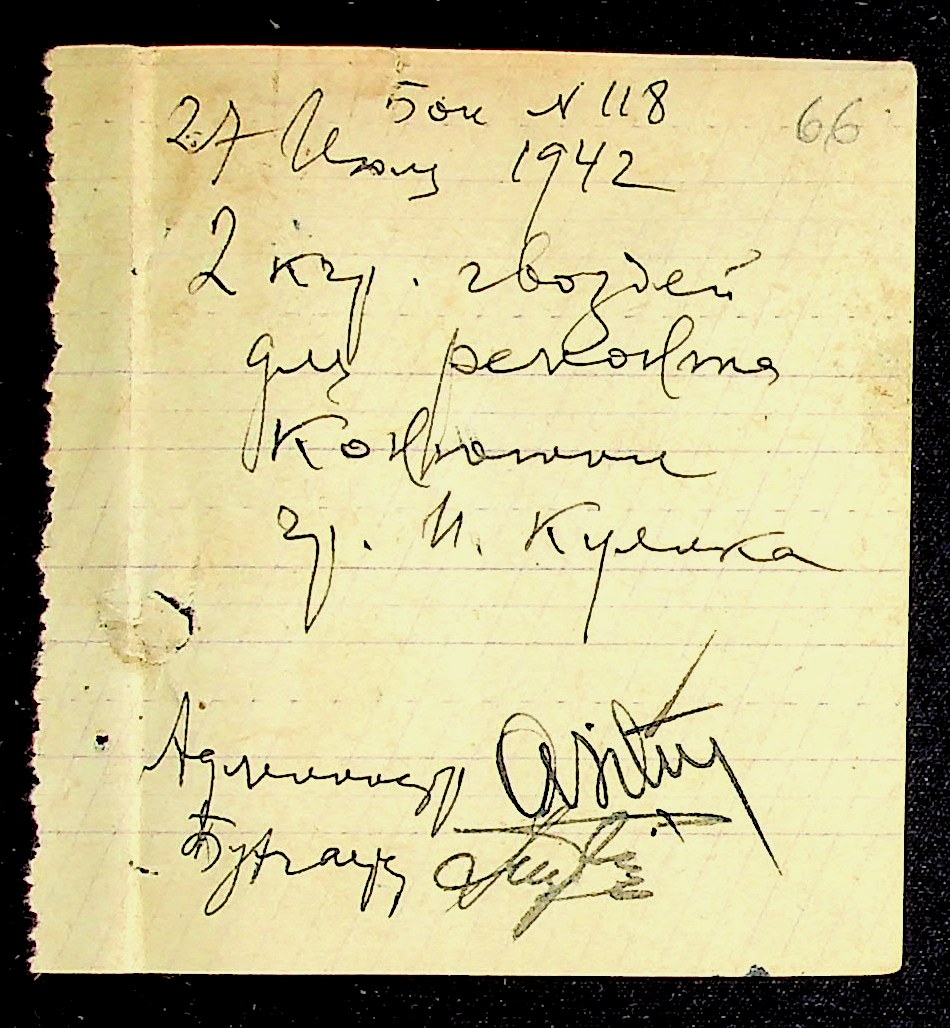 Бон № 118
66
27 Июля 1942
2 кгр. гвоздей
для ремонта
Конюшни
гр. И. Кулика
Админист